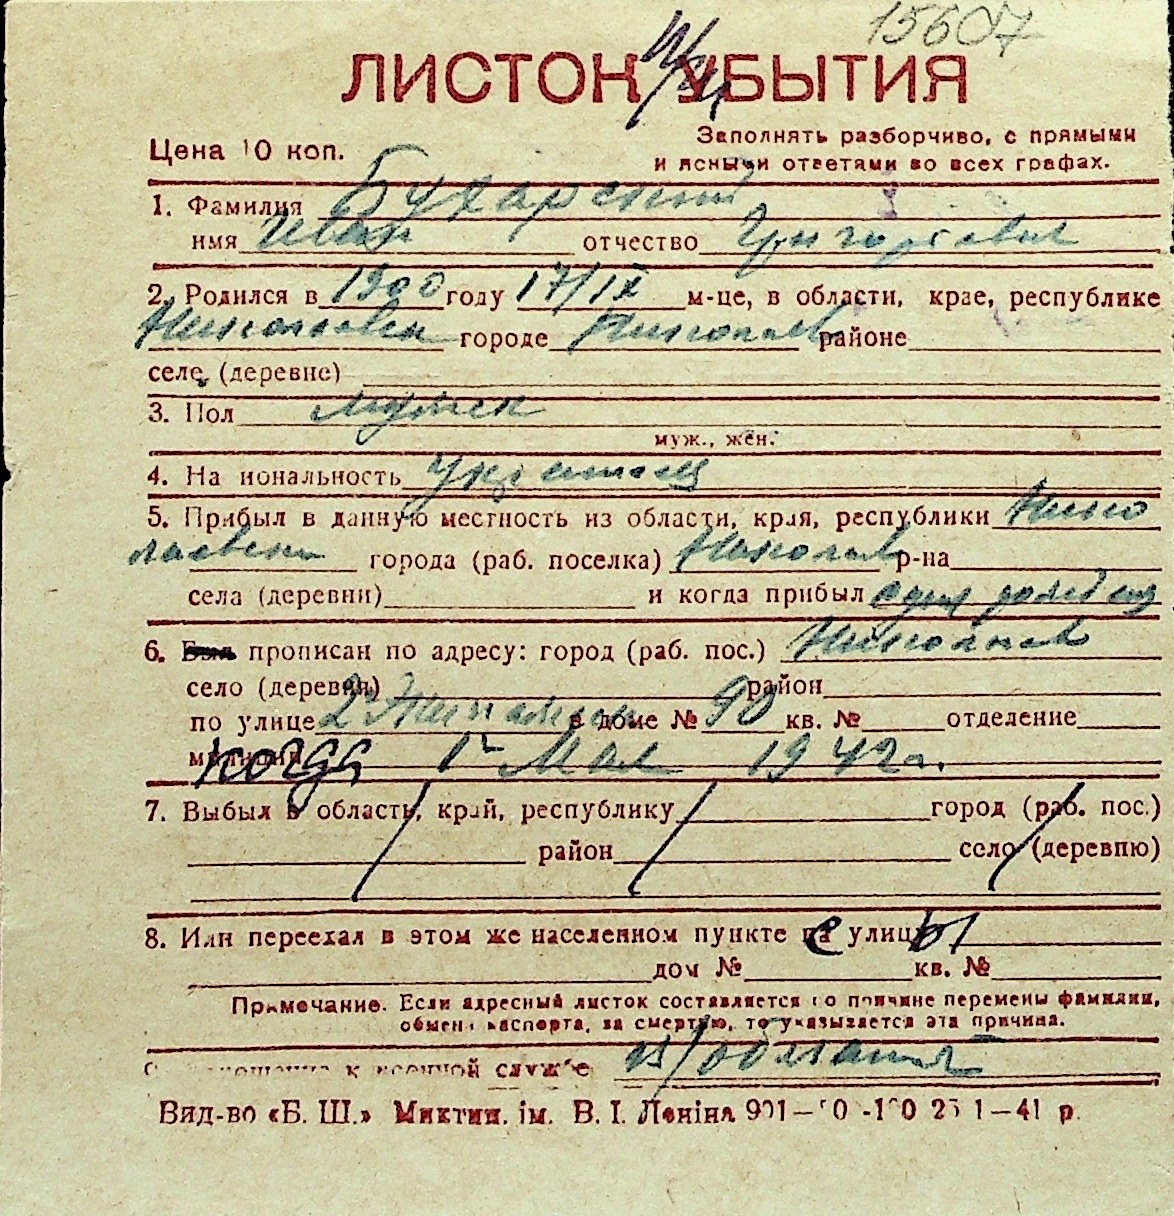 15607
ЛИСТОК УБЫТИЯ
Цена 10 коп.
Заполнять разборчиво, с прямыми
и ясными ответами во всех графах.
1. Фамилия Бухарский
имя Иван отчество Григорьевич
2. Родился в 1900 году 17/IX м-це, в области, крае, республике
Николаевск городе Николаев районе
селе (деревне)
3. Пол мужск
муж., жен.
4. На иональность украинец
5. Прибыл в данную местность из области, края, республики Нико
лаевск города (раб. поселка) Николаев р-на
села (деревни) и когда прибыл
6. Был прописан по адресу: город (раб. пос.) Николаев
село (деревня) район
по улице 2 в доме № 90 кв. № отделение
милиции когда 1го Мая 1942 г.
7. Выбыл в область, край, республику город (раб. пос.)
район село (деревню)
8. Или переехал в этом же населенном пункте с улицы
дом № кв. №
Примечание. Если адресный листок составляется по причине перемены фамилии,
обмена паспорта, за смертью, то указывается эта причина.
к военной службе в/обязан
Вид-во «Б. Ш.» Миктип. ім. В. І. Леніна 1—41 р.